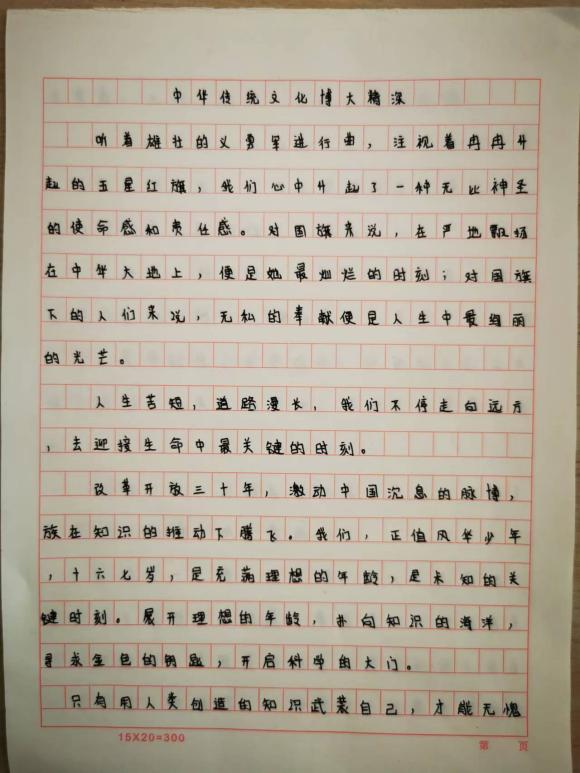 中华传统文化博大精深
听着雄壮的义勇军进行曲，注视着冉冉升
起的五星红旗，我们心中升起了一种无比神圣
的使命感和责任感。对国旗来说，在严地飘扬
在中华大地上，便是她最灿烂的时刻；对国旗
下的人们来说，无私的奉献便是人生中最绚丽
的光芒。
人生苦短，道路漫长，我们不停走向远方
，去迎接生命中最关键的时刻。
改革开放三十年，激动中国沉息的脉博，
族在知识的推动下腾飞。我们，正值风华少年
，十六七岁，是充满理想的年龄，是未知的关
键时刻。展开理想的年龄，扑向知识的海洋，
寻求金色的钥匙，开启科学的大门。
只有用人类创造的知识武装自己，才能无愧
15X20=300
第 页